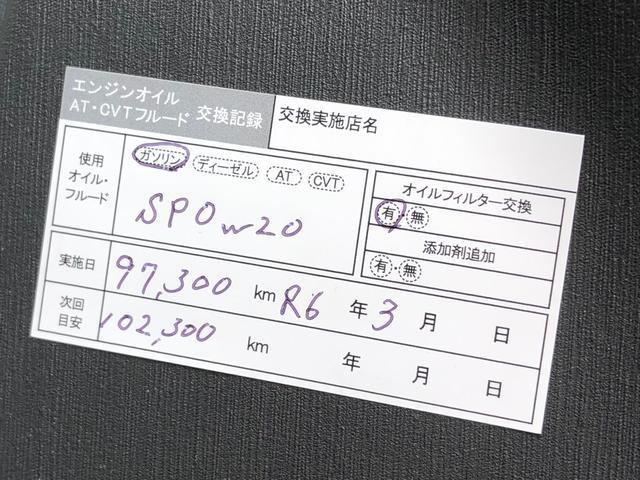 エンジンオイル
AT・CVTフルード 交換記録
交換実施店名
使用
オイル・
フルード
ガソリン ディーゼル AT CVT
SP0w20
オイルフィルター交換
有・無
添加剤追加
有・無
実施日 97,300 km R6 年 3 月 日
次回
目安 102,300 km 年 月 日